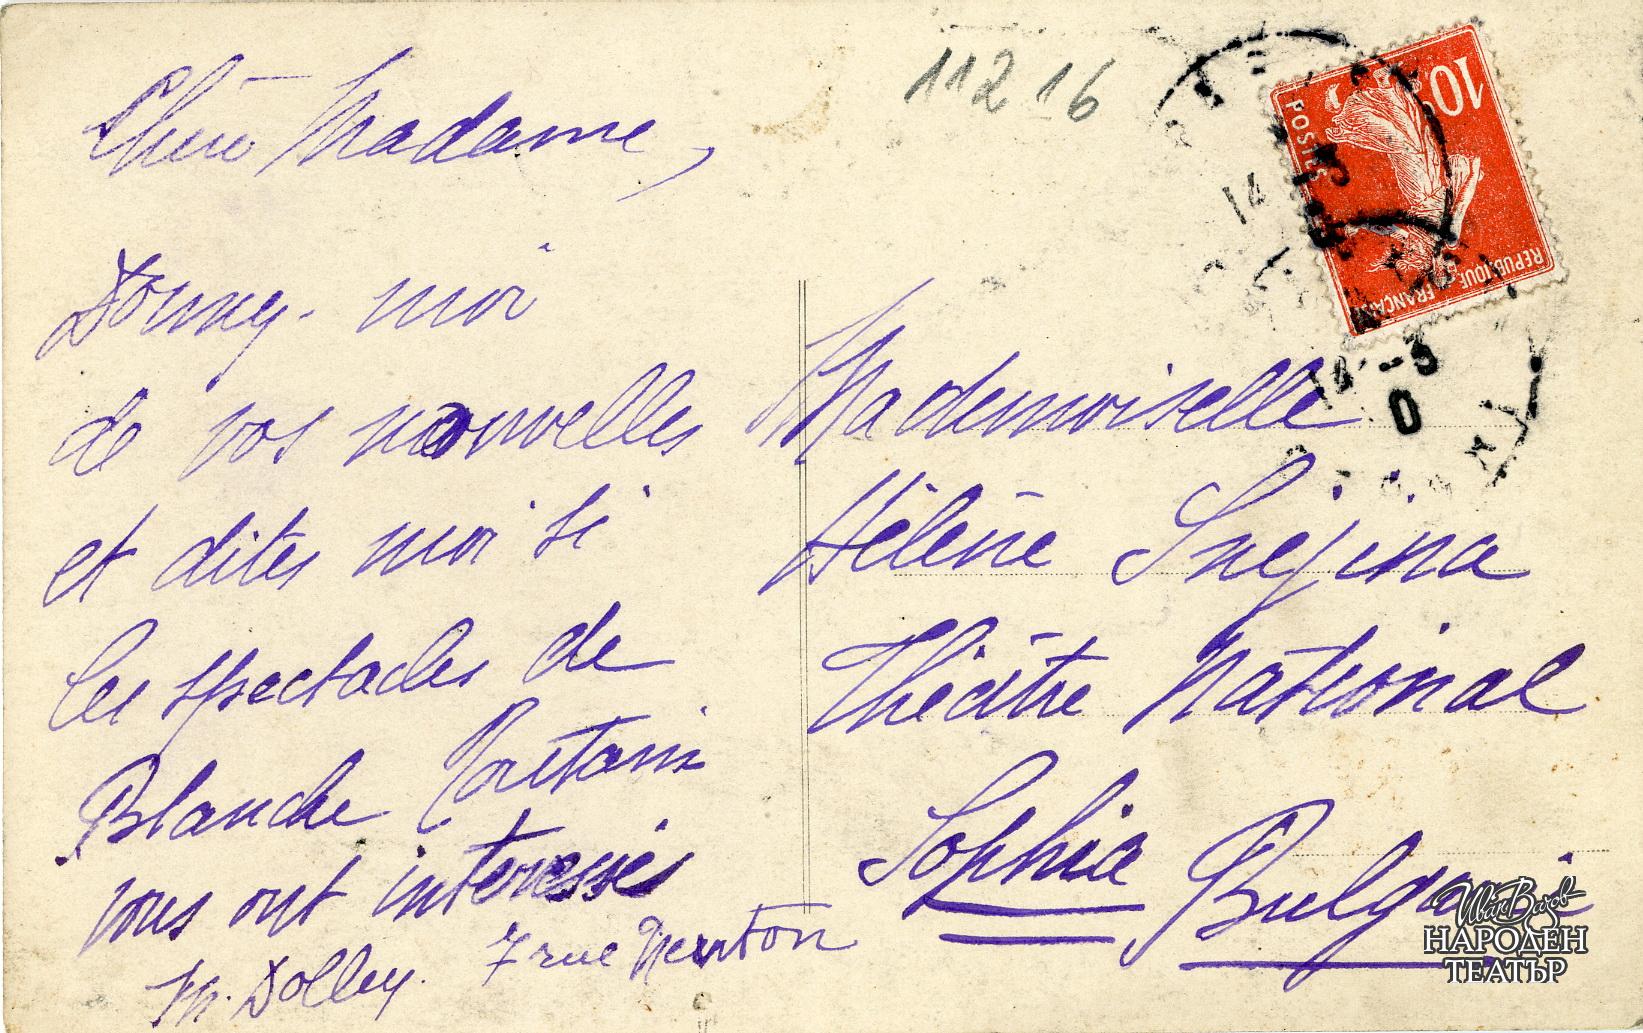 Chère Madame,
Donnez-moi
de vos nouvelles
et dites moi si
les spectacles de
Blanche
vous ont interessés
M. Dolley. 7 rue Newton
11216
10
POSTES
REPUBLIQUE FRANÇAISE
Mademoiselle
Hélène Snejina
Théâtre National
Sophia Bulgarie
Иван Вазов
НАРОДЕН
ТЕАТЪР